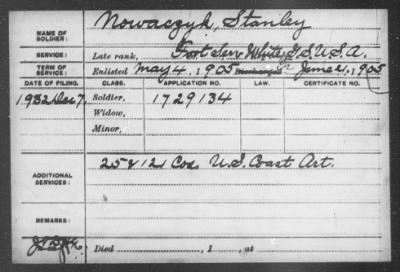 NAME OF SOLDIER: Nowaczyk, Stanley
SERVICE: Late rank, Fort Serv. White, G.S.U.S.A.
TERM OF SERVICE: Enlisted May 4, 1905 Discharged June 21, 1905
DATE OF FILING. CLASS. APPLICATION NO. LAW. CERTIFICATE NO.
1932 Dec 7. Soldier, 1729134
Widow,
Minor,
ADDITIONAL SERVICES: 25 & 121 Coa. U.S. Coast Art.
REMARKS:
Died , 1 , at